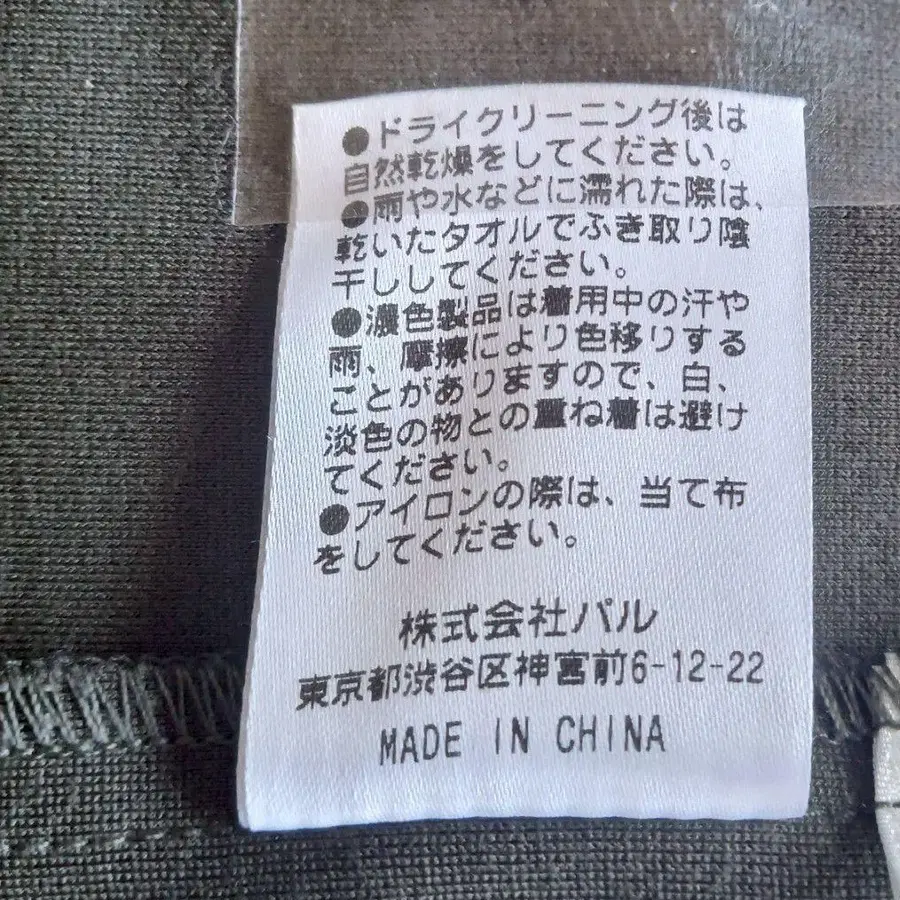 ●ドライクリーニング後は
自然乾燥をしてください。
●雨や水などに濡れた際は、
乾いたタオルでふき取り陰
干ししてください。
●濃色製品は着用中の汗や
雨、摩擦により色移りする
ことがありますので、白、
淡色の物との重ね着は避け
てください。
●アイロンの際は、当て布
をしてください。
株式会社パル
東京都渋谷区神宮前6-12-22
MADE IN CHINA